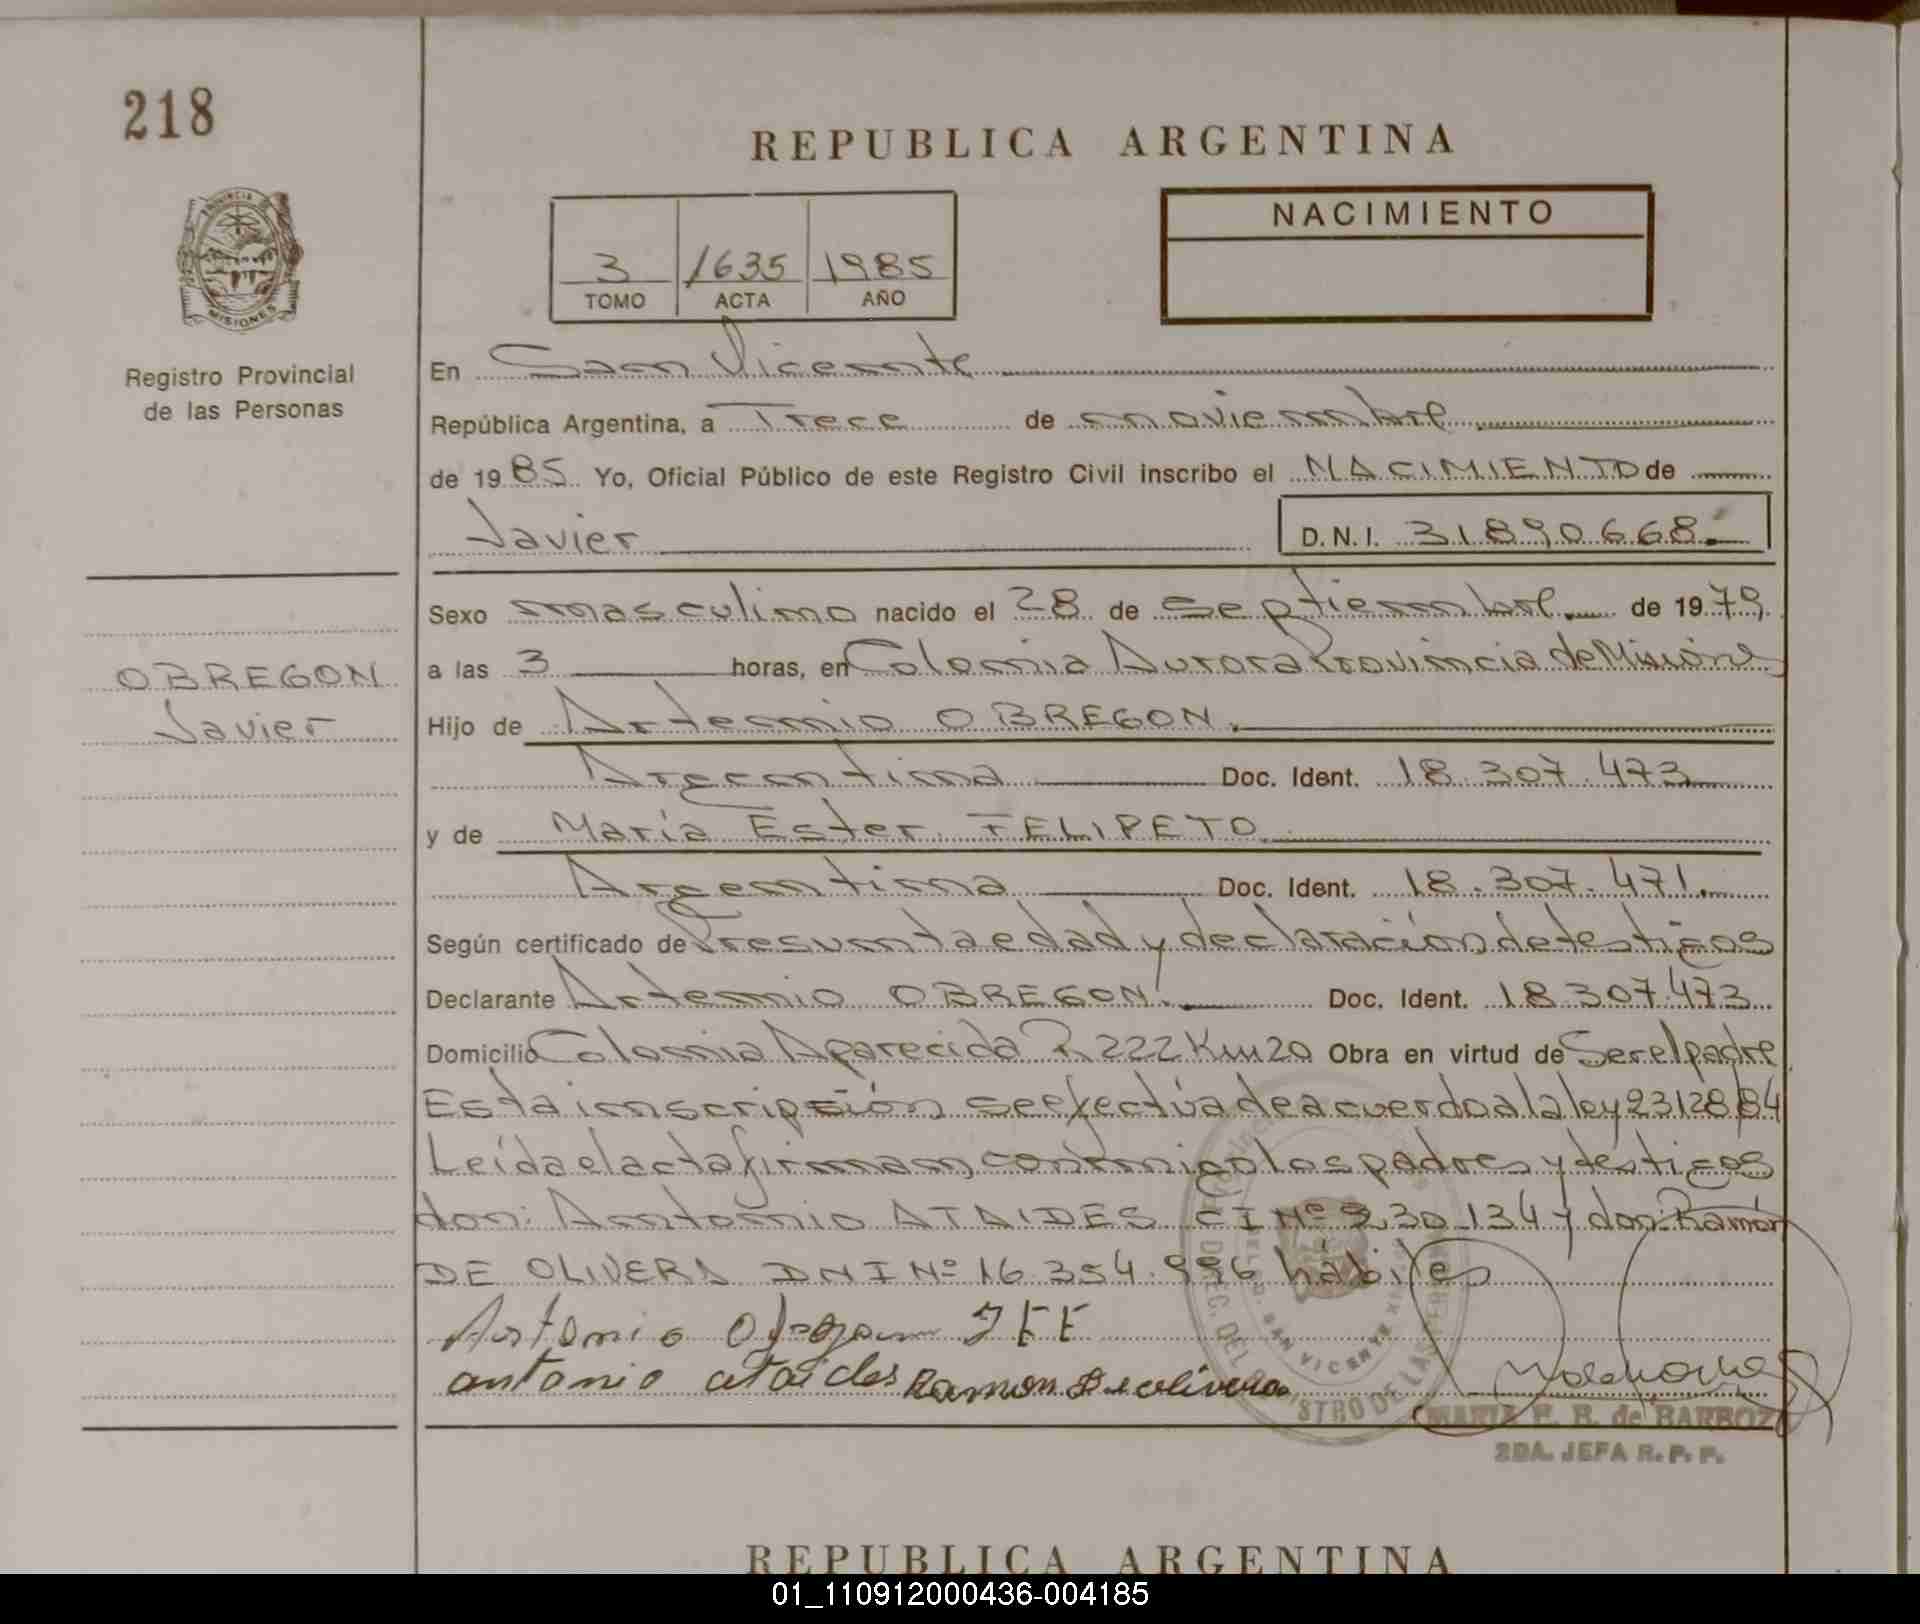 218
REPUBLICA ARGENTINA
PROVINCIA DE
MISIONES
3 1635 1985
TOMO ACTA AÑO
NACIMIENTO
Registro Provincial
de las Personas
En San Vicente
República Argentina, a Trece de noviembre
de 1985 Yo, Oficial Público de este Registro Civil inscribo el NACIMIENTO de
Javier D.N.I. 31890668.
Sexo masculino nacido el 28 de septiembre. de 1979
OBREGON
Javier
a las 3 horas, en Colonia Aurora Provincia de Misiones
Hijo de Artemio OBREGON.
Argentina Doc. Ident. 18.307.473
y de María Ester FELIPETO
Argentina Doc. Ident. 18.307.471.
Según certificado de Presunta edad y declaración de testigos
Declarante Artemio OBREGON. Doc. Ident. 18.307.473
Domicilio Colonia Aparecida R 222 Km 20 Obra en virtud de Ser el padre
Esta inscripción se efectúa de acuerdo a la ley 23128/84
Leída el acta firman conmigo los padres y testigos
don: Antonio ATAIDES CI Nº 230.134 y don: Ramón
DE OLIVERA DNI Nº 16.354.996 hábiles
antonio ataides Ramon De olivera
SAN VICENTE
MARIA E. B. de BARBOZA
2DA. JEFA R. P. P.
REPUBLICA ARGENTINA
01_110912000436-004185